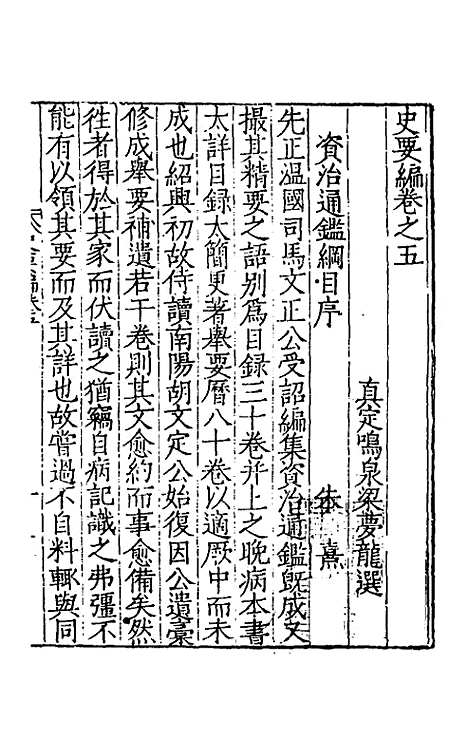 史要編卷之五
真定鳴泉梁夢龍選
資治通鑑綱目序 朱熹
先正溫國司馬文正公受詔編集資治通鑑旣成又
撮其精要之語別爲目録三十卷幷上之晚病本書
太詳目録太簡更著舉要曆八十卷以適厥中而未
成也紹興初故侍讀南陽胡文定公始復因公遺稾
修成舉要補遺若干卷則其文愈約而事愈備矣然
徃者得於其家而伏讀之猶竊自病記識之弗彊不
能有以領其要而及其詳也故嘗過不自料輙與同